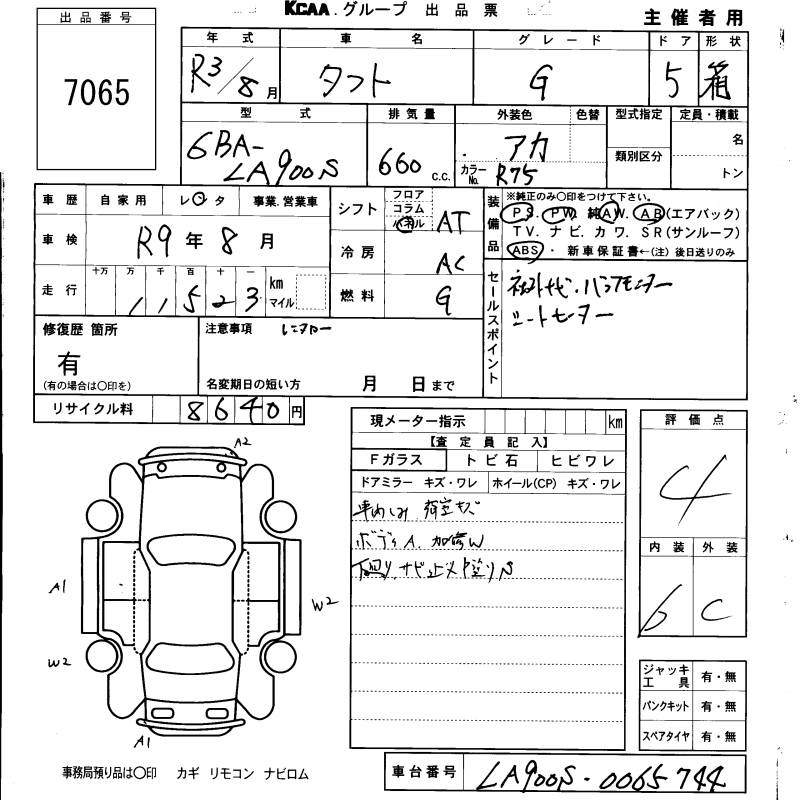 KCAA グループ 出品票
主催者用
出品番号
7065
年式 車名 グレード ドア 形状
R3/8月 タフト G 5 箱
型式 排気量 外装色 色替 型式指定 定員・積載
6BA-LA900S 660 c.c. アカ 類別区分 名
カラーNo. R75 トン
車歴 自家用 レンタ 事業.営業車
シフト フロア コラム パネル AT
車検 R9年8月
冷房 AC
走行 十万 万 千 百 十 一 km マイル
11523
燃料 G
装備品 ※純正のみ○印をつけて下さい。
PS. PW. 純AW. AB(エアバック)
TV. ナビ. カワ. SR(サンルーフ)
ABS ・ 新車保証書←(注) 後日送りのみ
セールスポイント
シートヒーター
修復歴 箇所
有
(有の場合は○印を)
注意事項
名変期日の短い方 月 日まで
リサイクル料 8640円
現メーター指示 km
【査定員記入】
Fガラス トビ石 ヒビワレ
ドアミラー キズ・ワレ ホイール(CP) キズ・ワレ
車内しみ. 荷室キズ
ボディA. 加修W
下廻り. サビ止メ塗りS
評価点
4
内装 外装
6 C
A2
A1
W2
W2
A1
ジャッキ工具 有・無
パンクキット 有・無
スペアタイヤ 有・無
事務局預り品は○印 カギ リモコン ナビロム
車台番号 LA900S-0065744